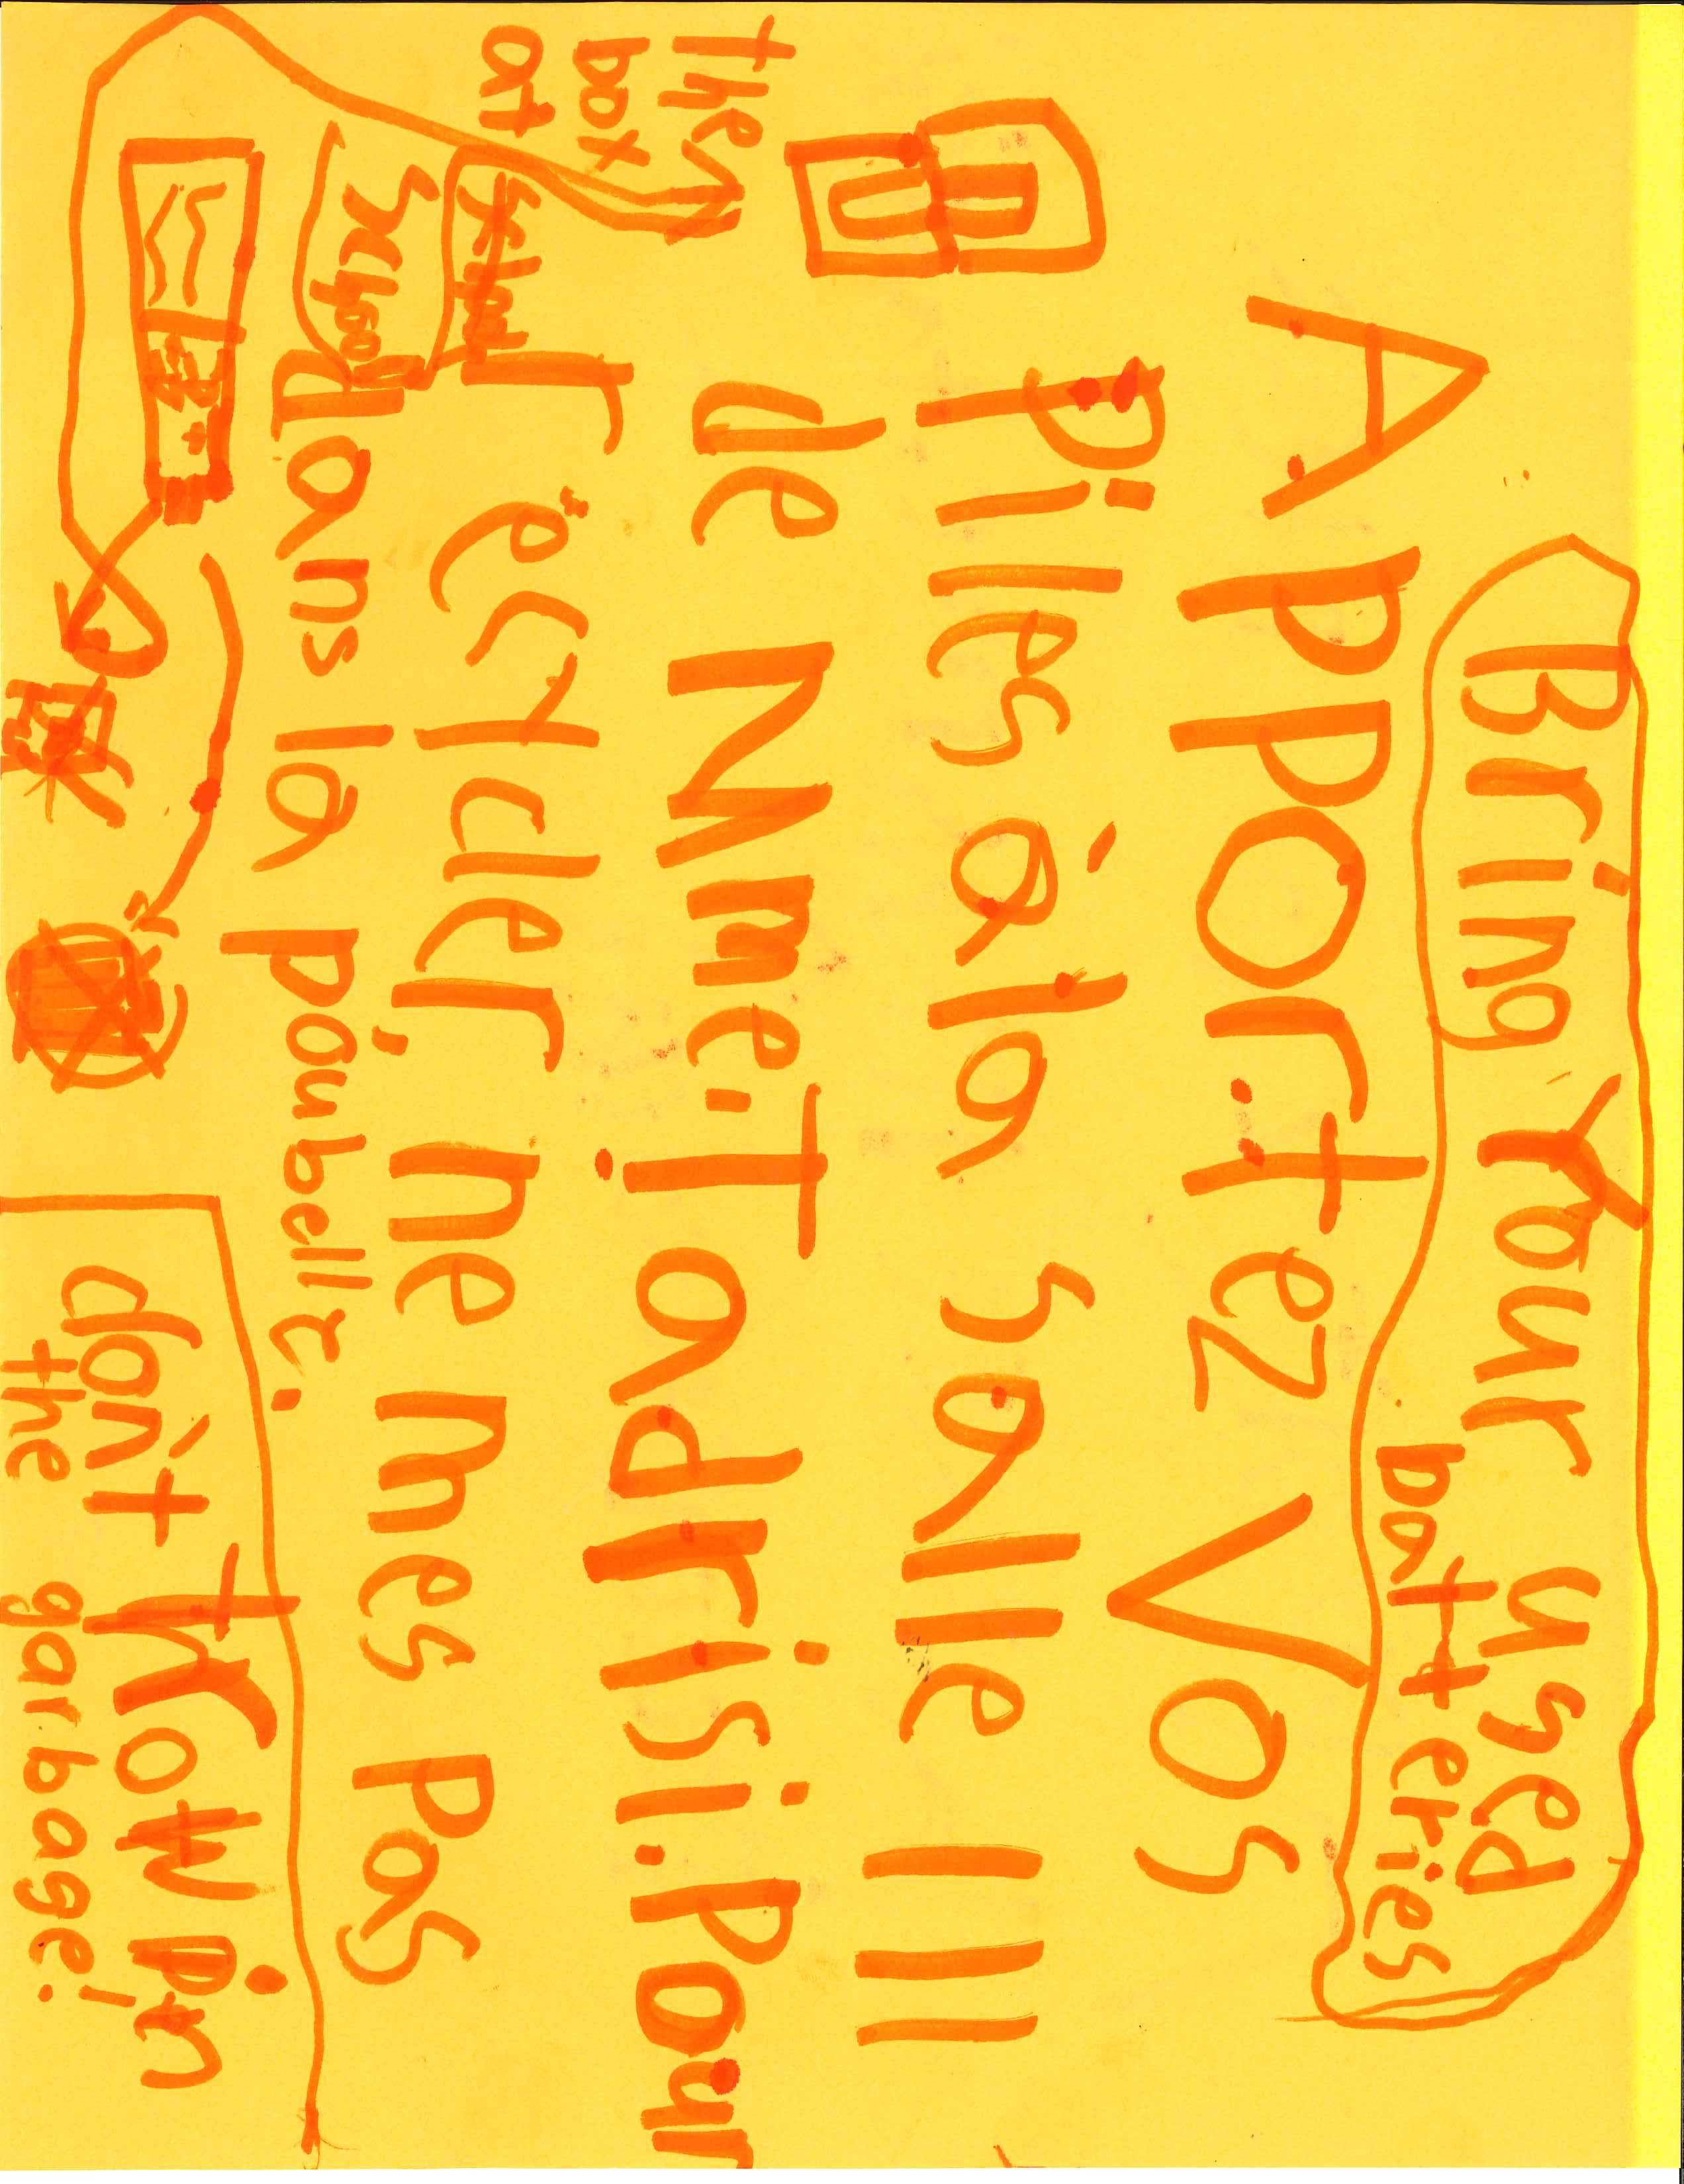 Bring Your used
batteries
Apportez Vos
Piles à la salle 111
de Mme.Tadrisi.Pour
the
box
at
School
recycler, ne mes pas
dans la poubelle.
don't Throw in
the garbage!